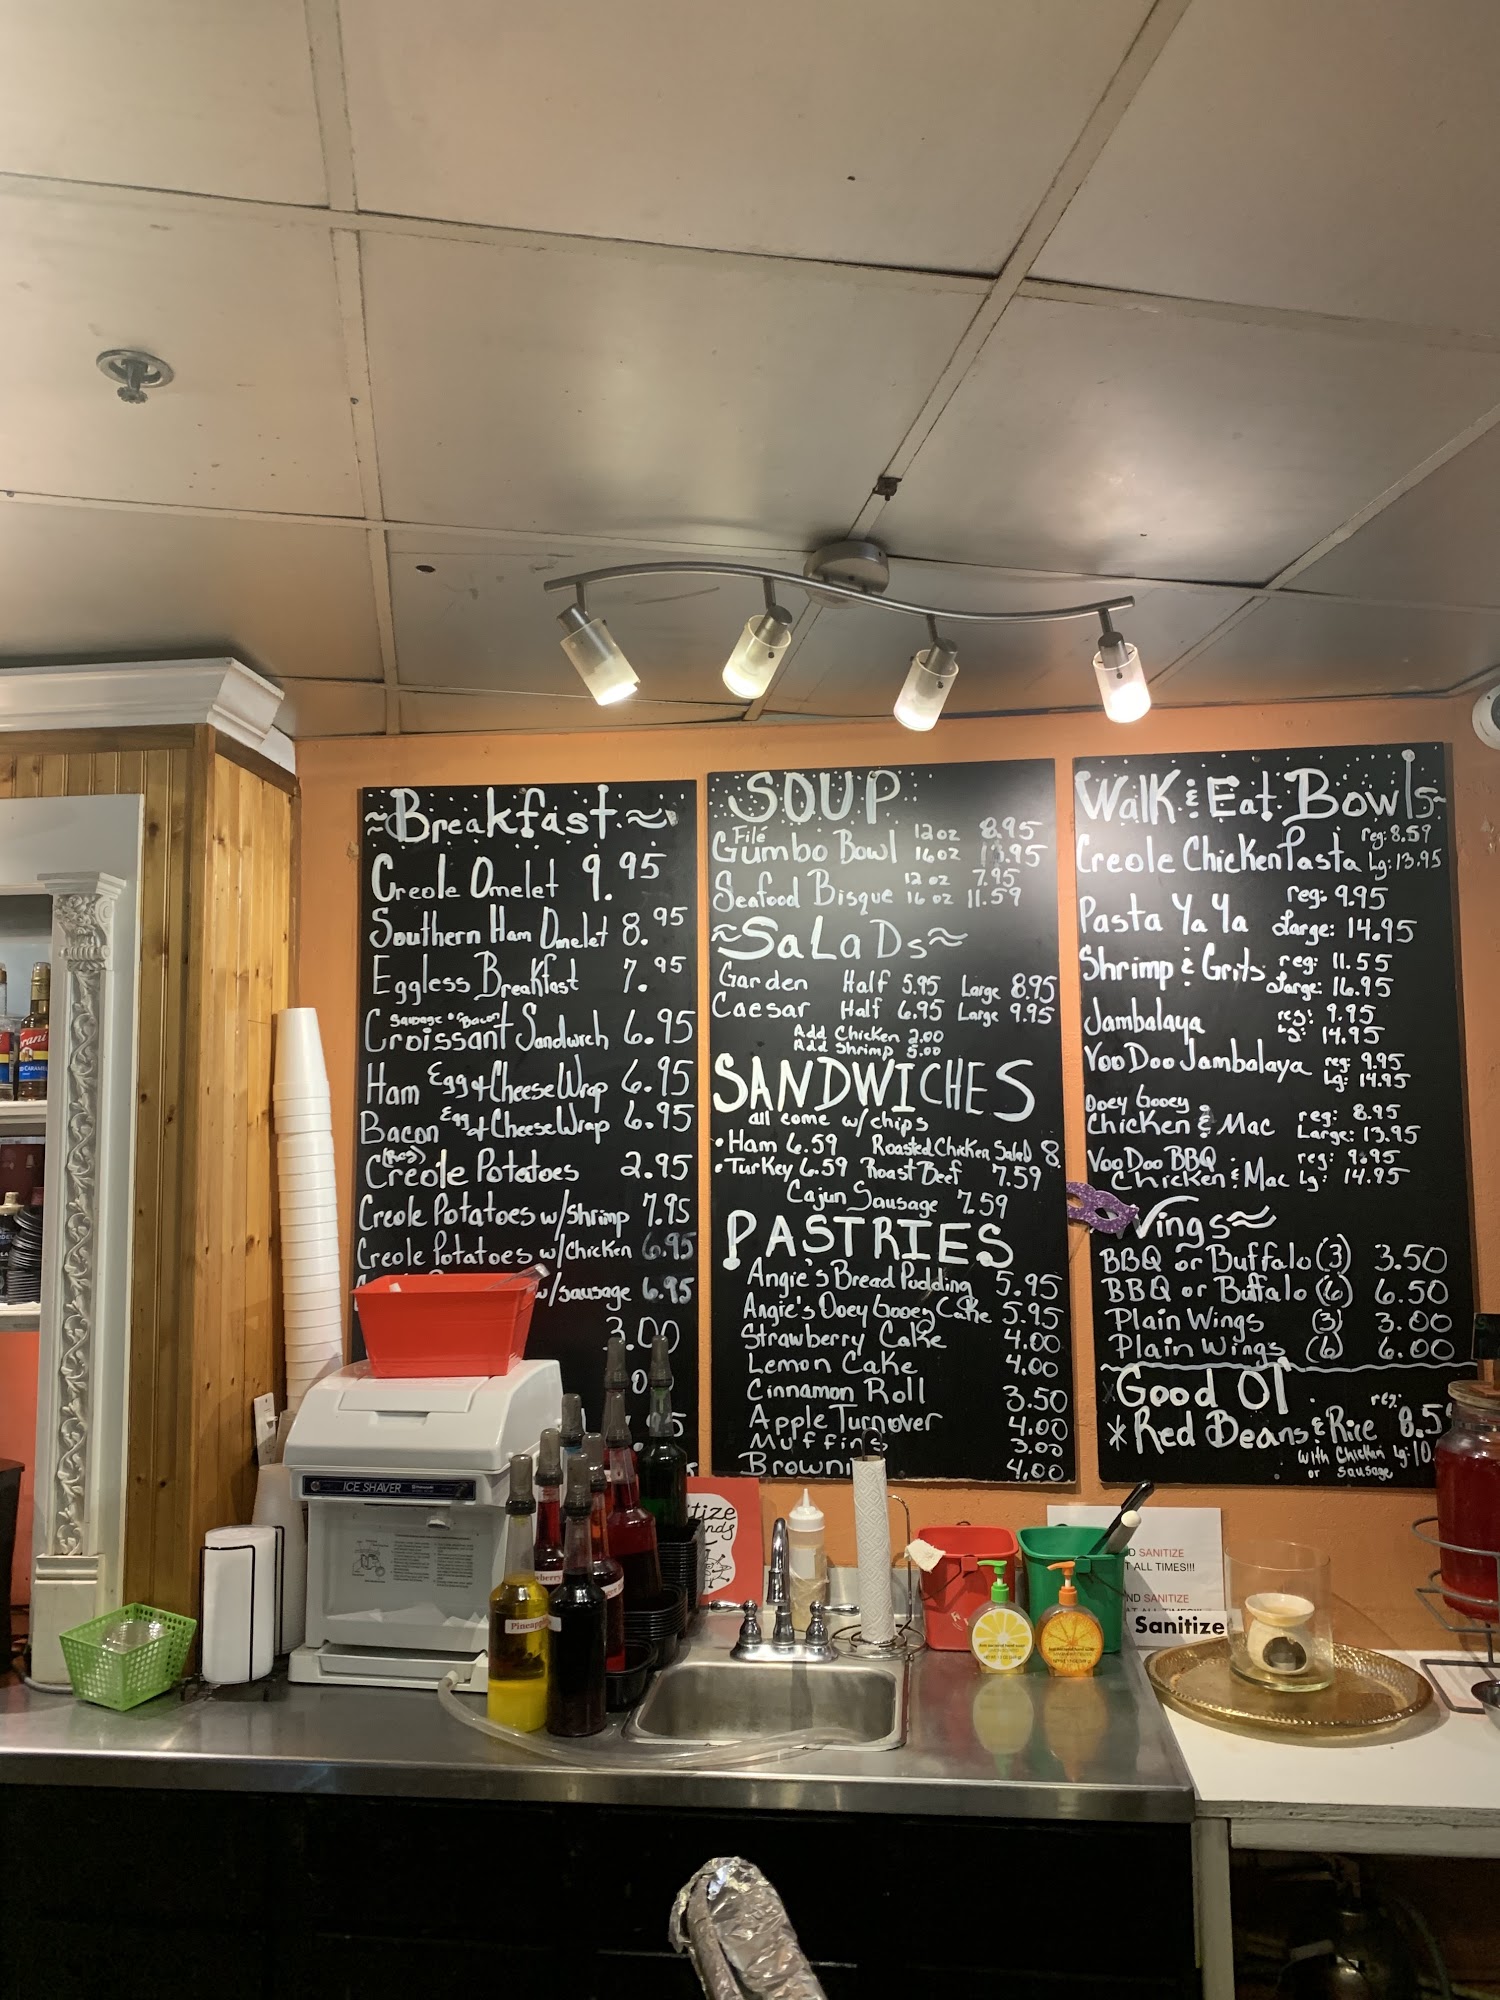 ~Breakfast~
Creole Omelet 9.95
Southern Ham Omelet 8.95
Eggless Breakfast 7.95
Sausage or Bacon
Croissant Sandwich 6.95
Ham Egg & Cheese Wrap 6.95
Bacon Egg & Cheese Wrap 6.95
(Reg)
Creole Potatoes 2.95
Creole Potatoes w/shrimp 7.95
Creole Potatoes w/chicken 6.95
w/sausage 6.95
3.00
SOUP
Filé
Gumbo Bowl 12oz 8.95
16oz 13.95
Seafood Bisque 12 oz 7.95
16 oz 11.59
~SaLaDs~
Garden Half 5.95 Large 8.95
Caesar Half 6.95 Large 9.95
Add Chicken 2.00
Add Shrimp 5.00
SANDWICHES
all come w/chips
•Ham 6.59 Roasted Chicken Salad 8.
•Turkey 6.59 Roast Beef 7.59
Cajun Sausage 7.59
PASTRIES
Angie's Bread Pudding 5.95
Angie's Ooey Gooey Cake 5.95
Strawberry Cake 4.00
Lemon Cake 4.00
Cinnamon Roll 3.50
Apple Turnover 4.00
Muffins 3.00
Browni 4.00
Walk & Eat Bowls~
reg: 8.59
Creole Chicken Pasta Lg: 13.95
reg: 9.95
Pasta YaYa Large: 14.95
Shrimp & Grits reg: 11.55
Large: 16.95
Jambalaya reg: 9.95
14.95
VooDoo Jambalaya reg: 9.95
Lg: 14.95
Ooey Gooey
Chicken & Mac reg: 8.95
Large: 13.95
VooDoo BBQ reg: 9.95
Chicken & Mac Lg: 14.95
Wings~
BBQ or Buffalo (3) 3.50
BBQ or Buffalo (6) 6.50
Plain Wings (3) 3.00
Plain Wings (6) 6.00
Good Ol
reg:
*Red Beans & Rice 8.5
with Chicken Lg: 10.
or sausage
ICE SHAVER
Pineapple
SANITIZE
ALL TIMES!!!
SANITIZE
Sanitize
CARAMEL